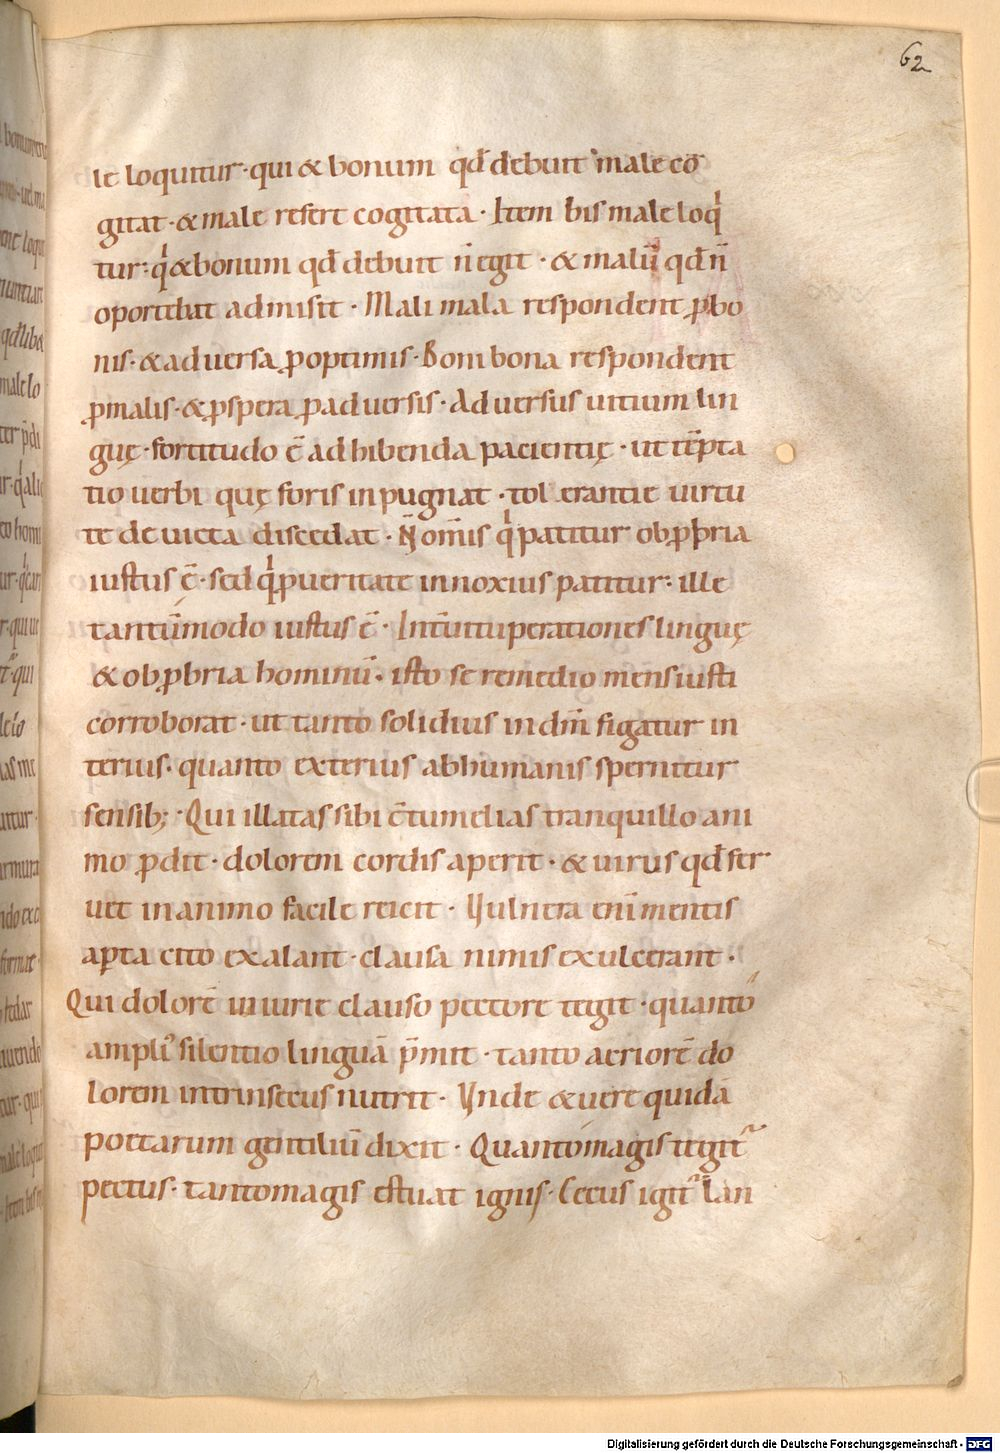 62
le loquitur · qui & bonum qđ debuit male cō
gitat · & male refert cogitata · Item bis male loq̍
tur: q̍ & bonum qđ debuit n̄ egit · & malū qđ n̄
oportebat admisit · Mali mala respondent ꝓ bo
nis · & adversa ꝓ optimis · Bom bona respondent
ꝓ malis · & ꝓspera ꝓ adversis · Adversus uitium lin
guę · fortitudo ē adhibenda pacientię · ut tēpta
tio uerbi quę foris inpugnat · tolerantie uirtu
te deuicta discedat · N̄ om̄is q̍ patitur obꝓbria
iustus ē · sed q̍ ꝓ ueritate innoxius patitur: ille
tantūmodo iustus ē · Int̄ uituperationes linguę
& obꝓbria hominū · isto se remedio mens iusti
corroborat · ut tanto solidius in dm̄ figatur in
terius · quanto exterius ab humanis spernitur
sensib; · Qui illatas sibi c̄tumelias tranquillo ani
mo ꝓdit · dolorem cordis aperit · & uirus qđ fer
uet in animo facile reicit · Vulnera enī mentis
aꝑta cito exalant · clausa nimis exulcerant ·
Qui dolorē iniurie clauso pectore tegit · quanto
ampli᾽ silentio linguā p̄mit · tanto acriorē do
lorem intrinsecus nutrit · Vnde & uere quidā
poetarum gentiliū dixit · Quanto magis tegit᷑
pectus · tanto magis estuat ignis · Cecus igit᷑ lan
Digitalisierung gefördert durch die Deutsche Forschungsgemeinschaft - DFG